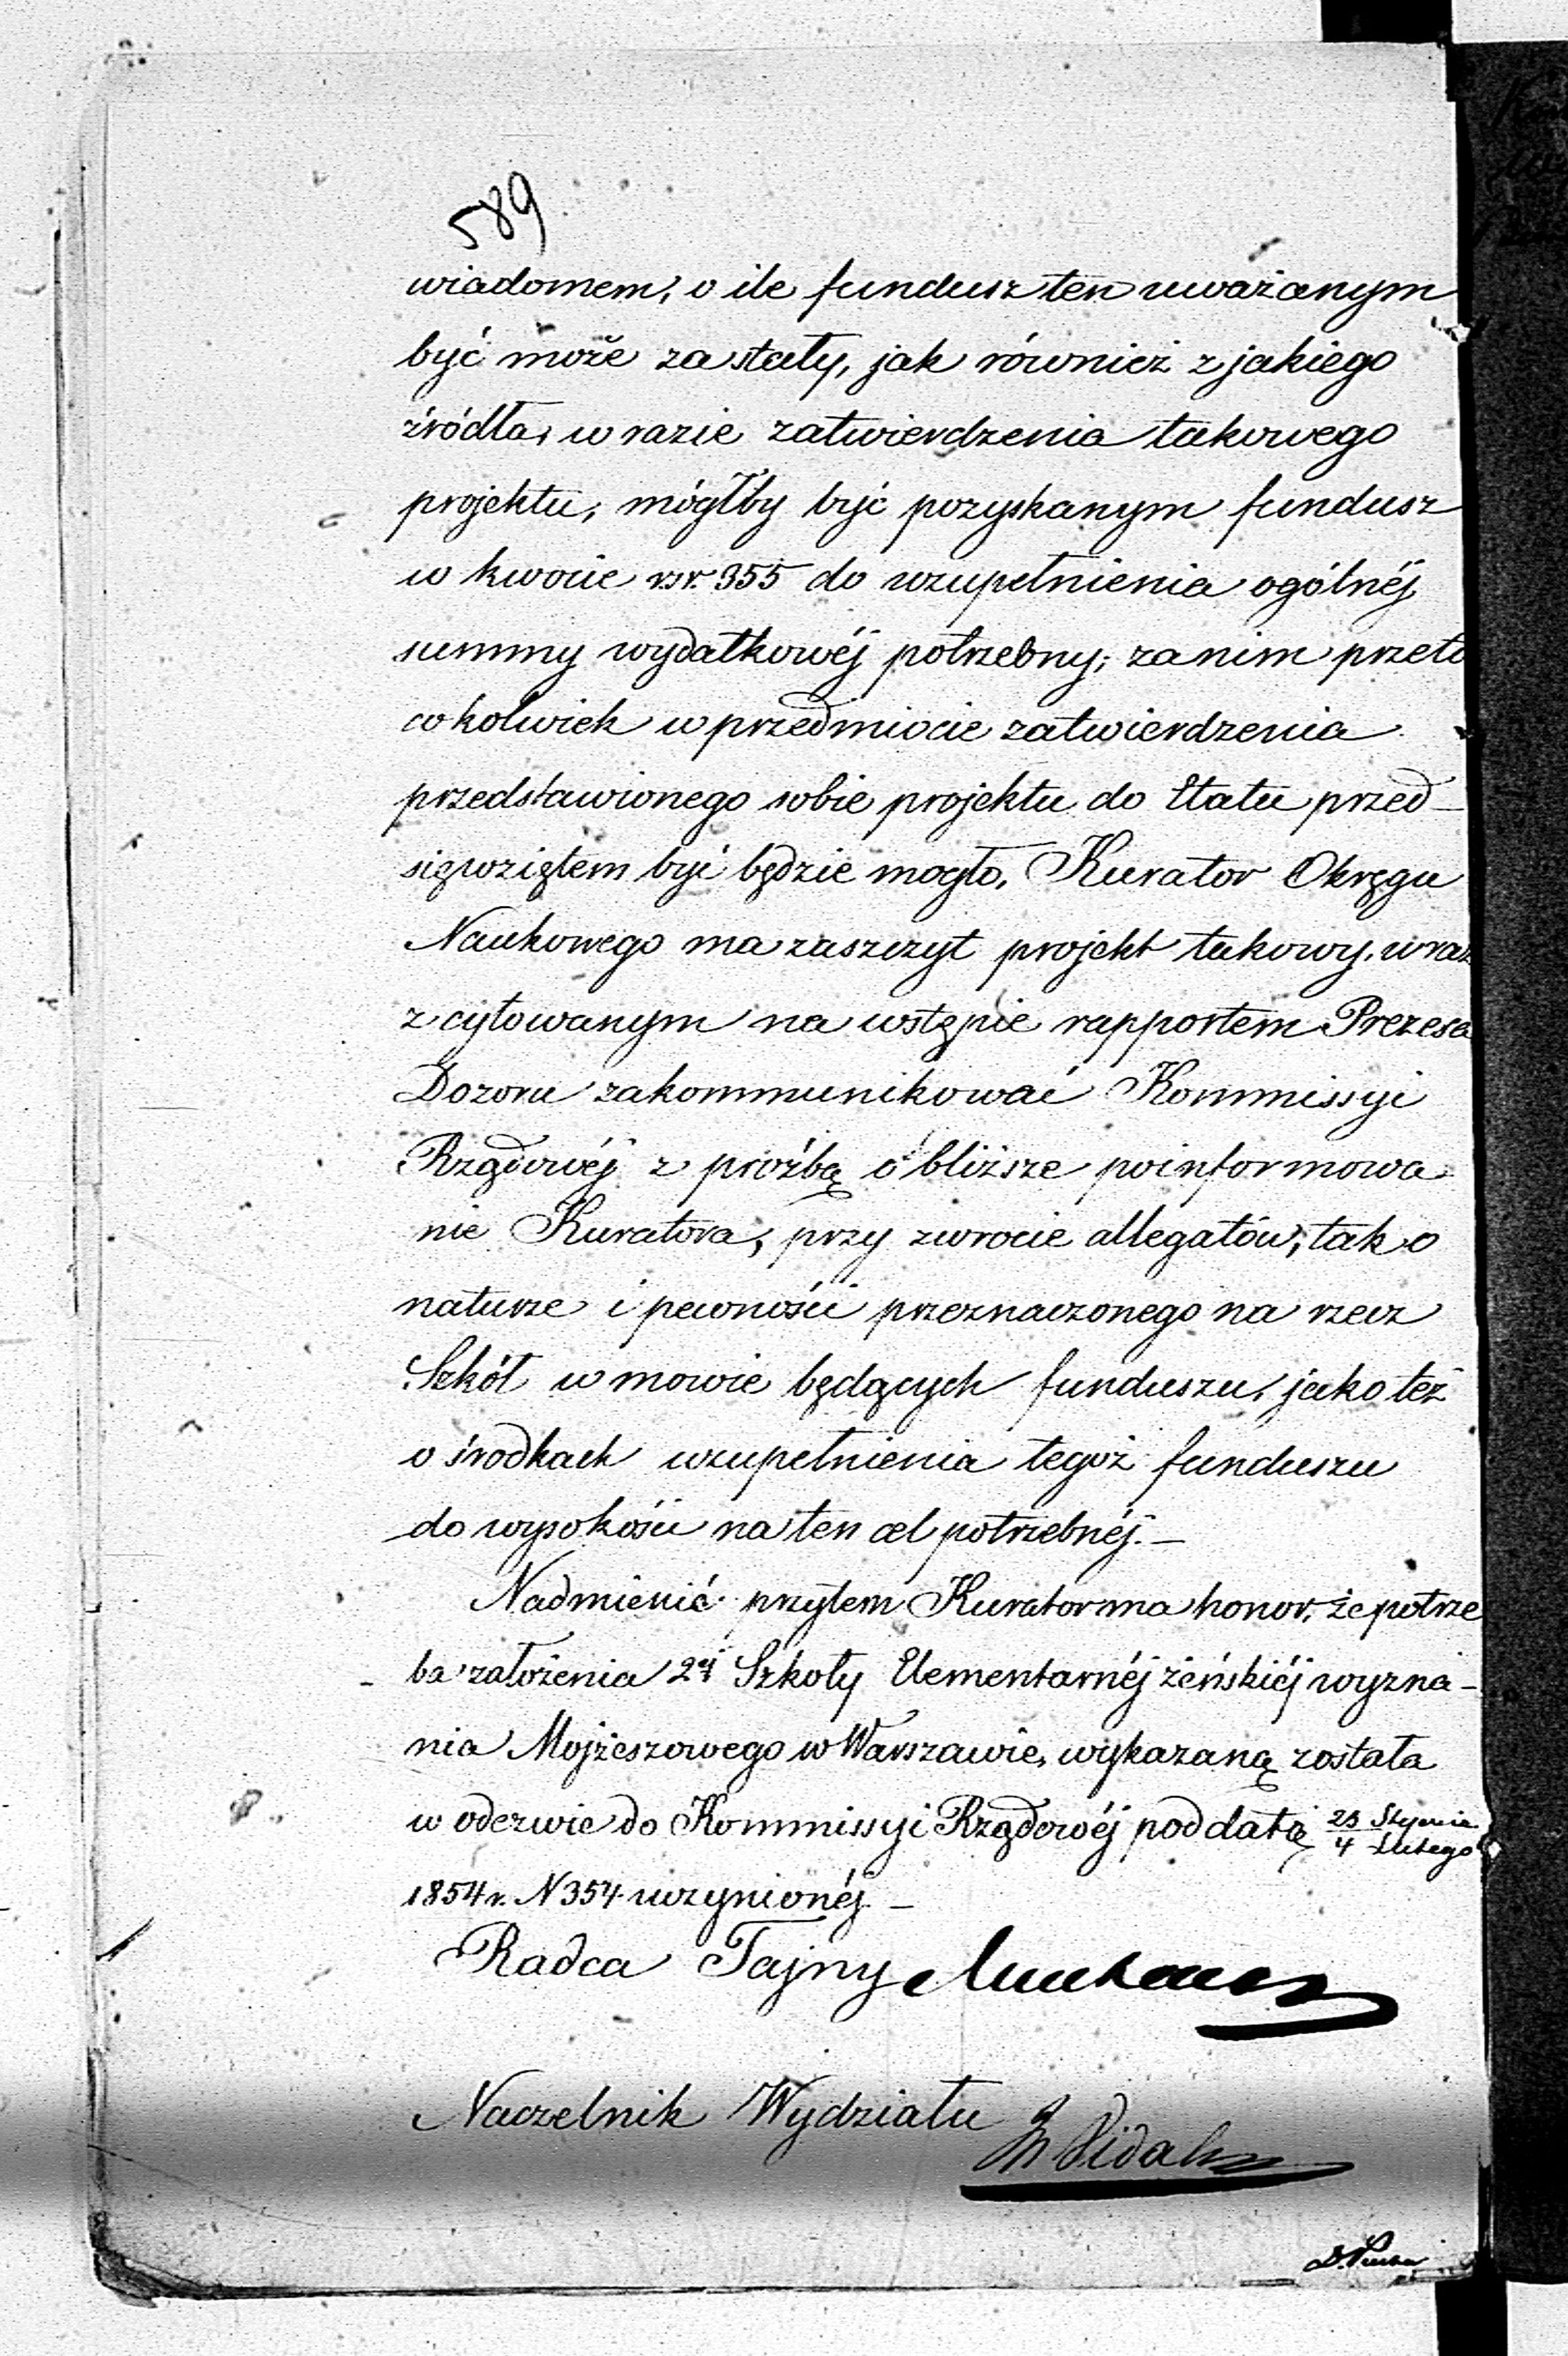 589
wiadomem, o ile fundusz ten uważanym
być może za stały, jak również z jakiego
źródła, w razie zatwierdzenia takowego
projektu, mógłby być pozyskanym fundusz
w kwocie rsr. 355 do uzupełnienia ogólnéj
summy wydatkowéj potrzebny; zanim przeto
cokolwiek w przedmiocie zatwierdzenia
przedstawionego sobie projektu do Etatu przed-
sięwziętem być będzie mogło, Kurator Okręgu
Naukowego ma zaszczyt projekt takowy, wraz
z cytowanym na wstępie rapportem Prezesa
Dozoru zakommunikować Kommissyi
Rządowéj z prośbą o bliższe poinformowa
nie Kuratora, przy zwrocie allegatów, tak o
naturze i pewności przeznaczonego na rzecz
Szkół w mowie będących funduszu, jako też
o środkach uzupełnienia tegoż funduszu
do wysokości na ten cel potrzebnéj. —
Nadmienić przytem Kurator ma honor, że potrze
ba założenia 2éj Szkoły Elementarnéj żeńskiéj wyzna-
nia Mojżeszowego w Warszawie, wykazaną została
w odezwie do Kommissyi Rządowéj pod datą 23 Stycznia / 4 Lutego
1854 r. N 354 uczynionéj. —
Radca Tajny
Naczelnik Wydziału